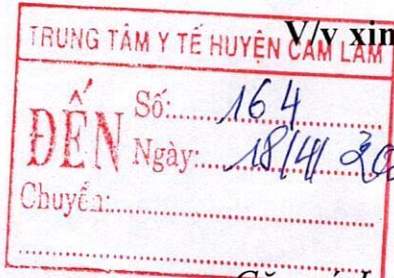 V/v xin
TRUNG TÂM Y TẾ HUYỆN CAM LÂM
ĐẾN
Số:.......164.......
Ngày:.......18/4/20
Chuyển:.......